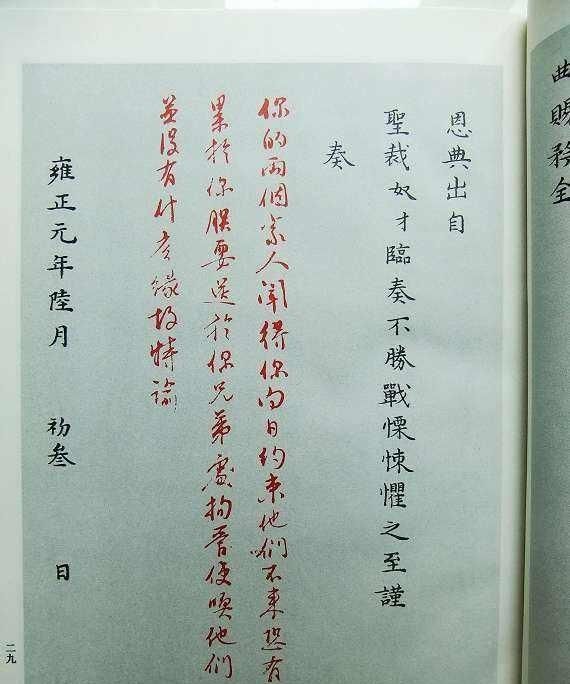 曲賜矜全
恩典出自
聖裁奴才臨奏不勝戰慄悚懼之至謹
奏
你的兩個家人聞得你向日約束他們不來恐有
累於你朕要送於你兄弟處拘管使喚他們
並沒有什麼緣故特諭
雍正元年陸月 初叁 日
二九